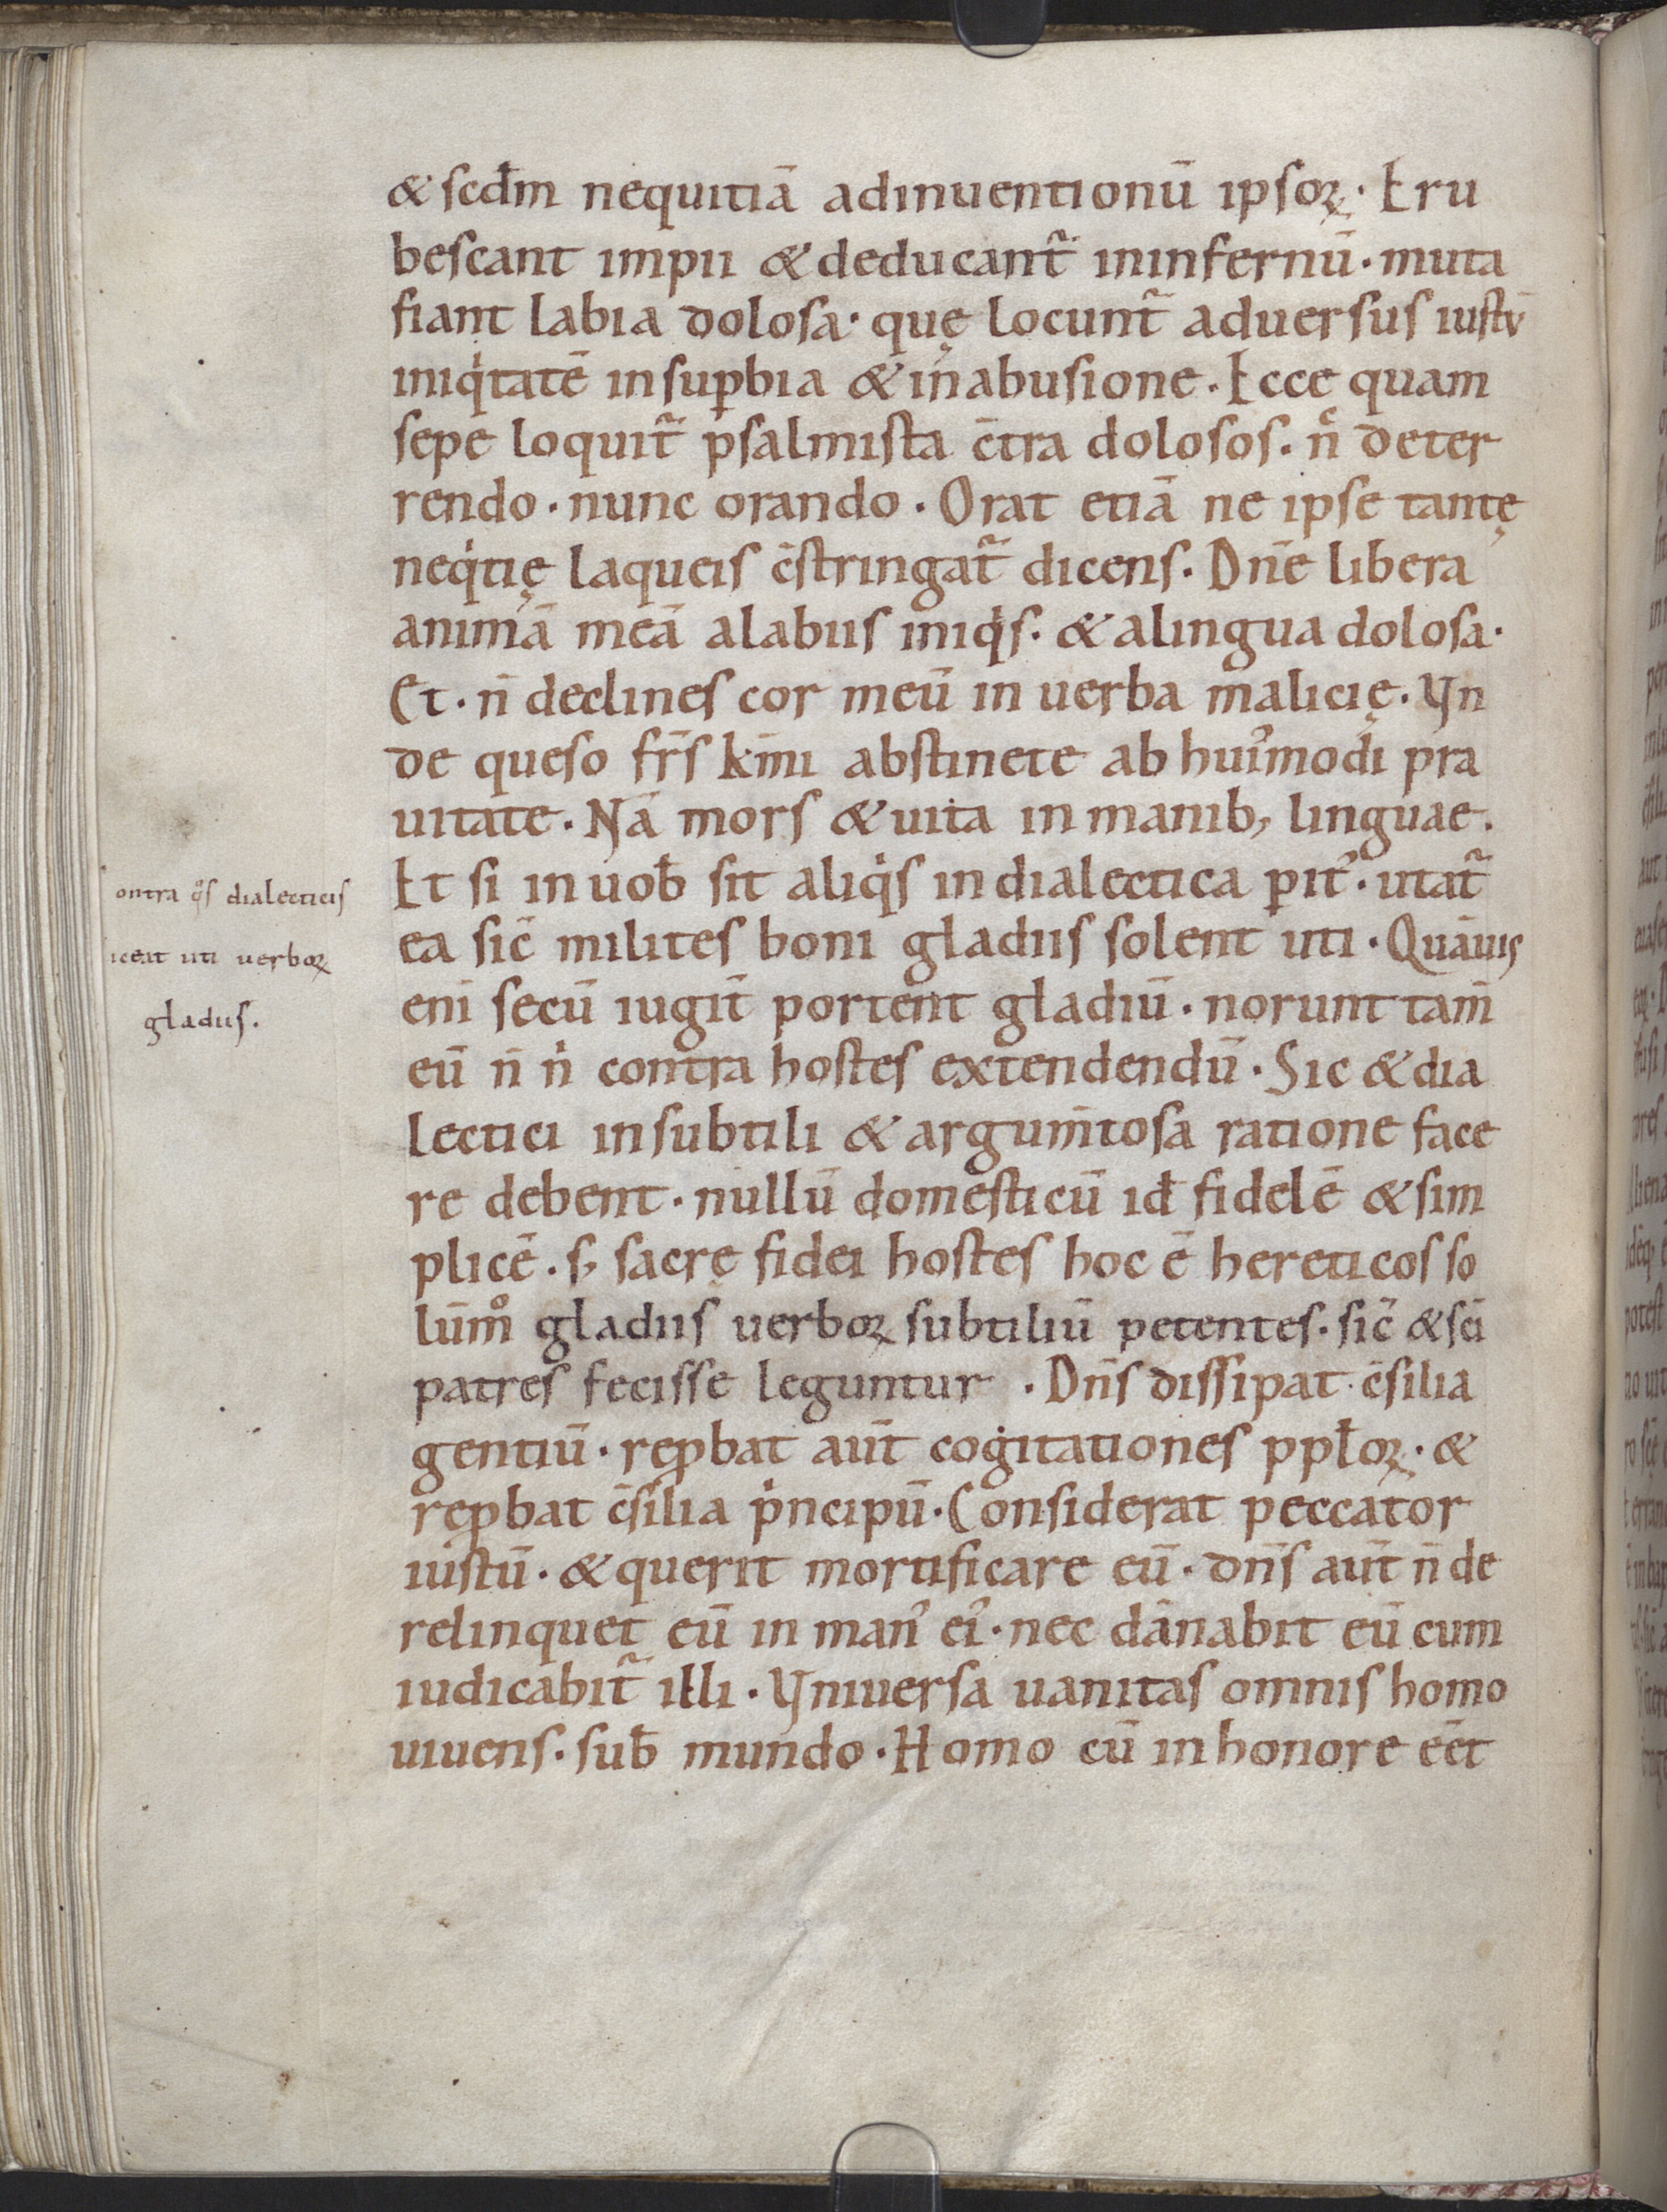 & scd̄m nequitiā adinuentionū ipsoꝝ. Eru
bescant impii & deducant᷑ ininfernū. muta
fiant labia dolosa. quę locunt᷑ aduersus iustū
iniqͥtatē insuꝑbia & inabusione. Ecce quam
sepe loquit᷑ psalmista c̄tra dolosos. nͨ deter
rendo. nunc orando. Orat etiā ne ipse tantę
neqͥtię laqueis c̄stringat᷑ dicens. Dn̄e libera
animā meā alabiis iniqͥs. & alingua dolosa.
Et. n̄ declines cor meū in uerba malicię. Vn
de queso fr̄s km̄i abstinete ab huiꝰmodi pra
uitate. Nā mors & uita in manib; linguae.
ontra qͦs dialecticis
iceat uti uerboꝝ
gladiis.
Et si in uob̄ sit aliqͥs in dialectica ꝑitꝰ. utat᷑
ea sic̄ milites boni gladiis solent uti. Quāuis
eni̅ secū iugit̄ portent gladiū. norunt tam̄
eū n̄ nͥ contra hostes extendendū. Sic & dia
lectici insubtili & argum̄tosa ratione face
re debent. nullū domesticū id̄ fidelē & sim
plicē. s; sacrę fidei hostes hoc ē hereticos so
lūmͦ gladiis uerboꝝ subtiliū petentes. sic̄ & sc̄i
patres fecisse leguntur. Dn̄s dissipat c̄silia
gentiū. reꝓbat aūt cogitationes ppl̄oꝝ. &
reꝓbat c̄silia pͥncipū. Considerat peccator
iustū. & querit mortificare eū. dn̄s aūt n̄ de
relinquet eū in manꝰ eiꝰ. nec dānabit eū cum
iudicabit᷑ illi. Vniuersa uanitas omnis homo
uiuens. sub̄ mundo. Homo cū inhonore eēt